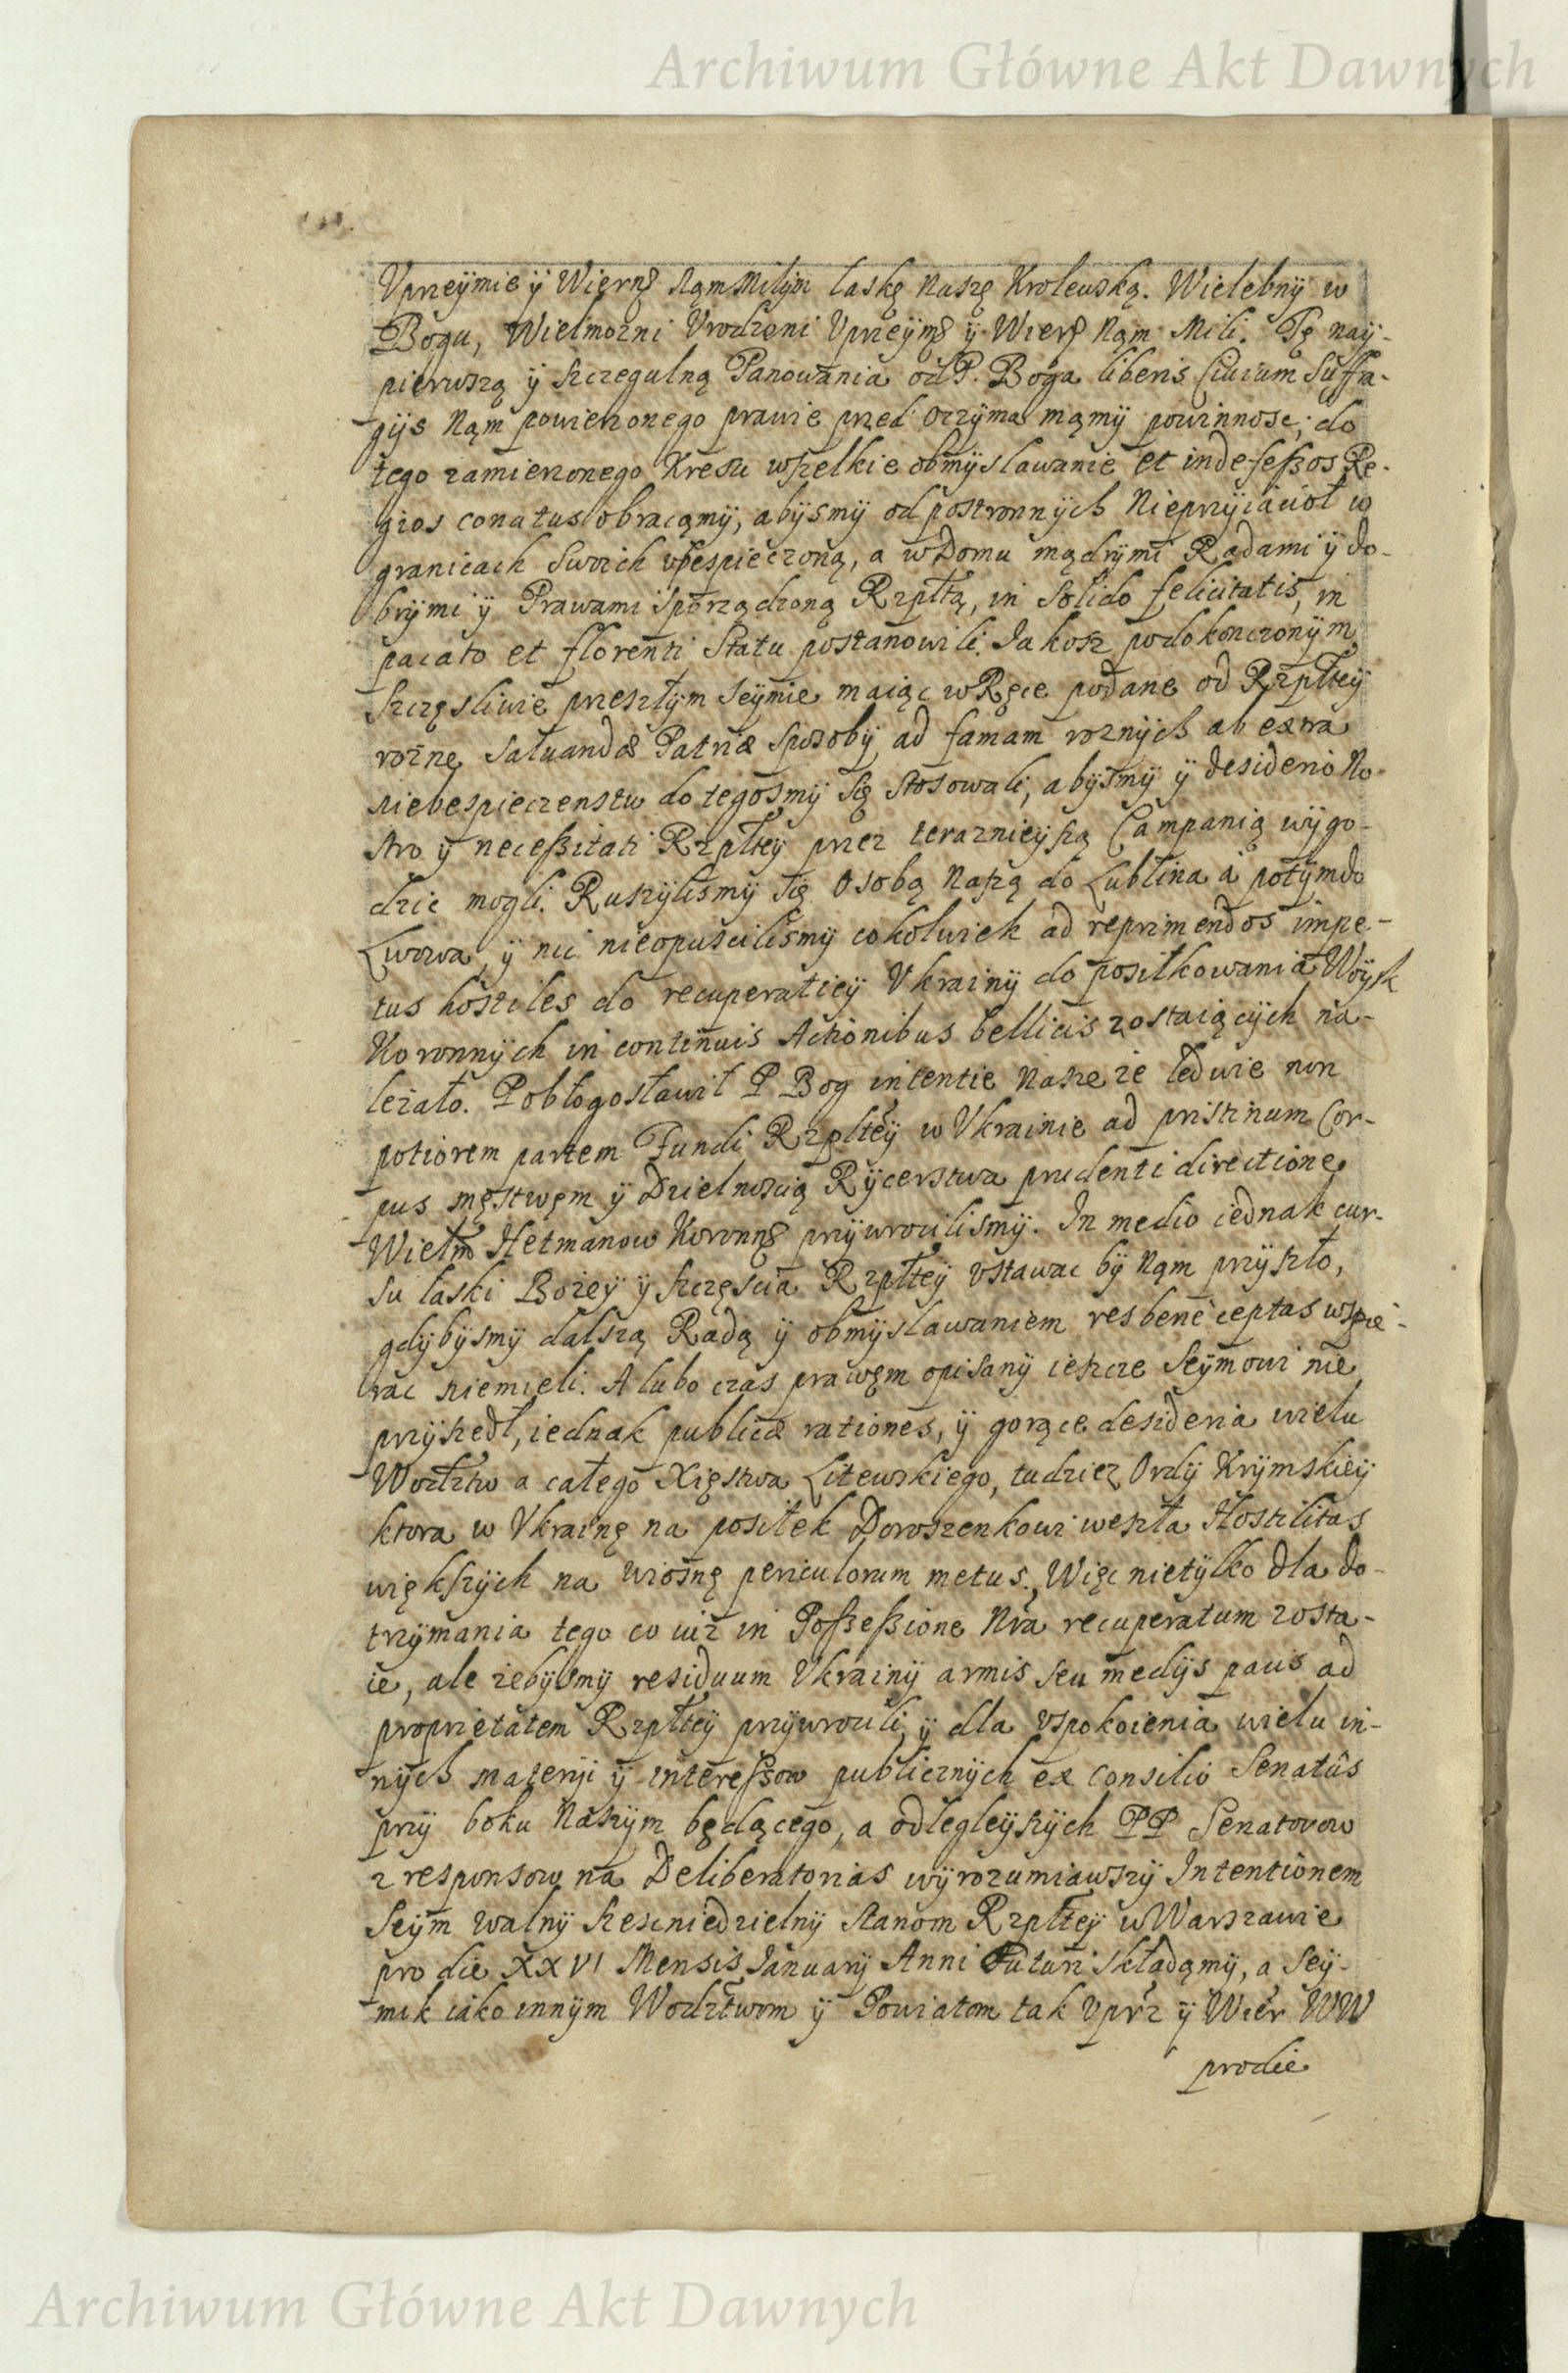 Archiwum Główne Akt Dawnych
Vprzeÿmie ÿ Wierng Nąm Miłÿm łaskę Naszę Krolewską. Wielebnÿ w
Bogu, Wielmozni Vrodzeni Vprzeÿmg ÿ Wierg Nąm Mili. Tę naÿ-
pierwszą ÿ szczegulną Panowania od P. Boga liberis Civium Suffra-
gijs Nąm powierzonego prawie przed oczÿma mąmÿ powinnosc; do
tego zamierzonego Kresu wszelkie obmÿslawanie et indefeßos Re-
gios conatus obracąmÿ, abÿsmÿ od postronnÿch Nieprzÿiacioł w
granicach Swoich vbespieczoną, a w Domu mądrÿmi Radami ÿ do-
brÿmi ÿ Prawami sporządzoną Rzpltą, in solido felicitatis, in
pacato et florenti Statu postanowili. Jakosz po dokonczonÿm
szczęsliwie przeszłÿm Seÿmie maiąc w Ręce podane od Rzpltеÿ
rożne saluandæ Patriæ sposobÿ ad famam roznÿch ab extra
niebespieczenstw do tegosmÿ się stosowali, abÿsmÿ ÿ desiderio No-
stro ÿ neceßitati Rzpltеÿ przez teraznieÿszą Campanią wÿgo-
dzic mogli. Ruszÿlismÿ się Osobą Naszą do Lublina a potÿm do
Lwowa, ÿ nic nieopuscilismÿ cokolwiek ad reprimendos impe-
tus hostiles do recuperatieÿ Vkrainÿ do posiłkowania Woÿsk
Koronnÿch in continuis Actionibus bellicis zostaiącÿch na-
leżało. Pobłogosławił P Bog intentie Nasze że ledwie non
potiorem partem Fundi Rzpltеÿ w Vkrainie ad pristinum Cor-
pus męstwęm ÿ Dzielnoscią Rÿcerstwa prudenti directione
Wielm Hetmanow Koronng przÿwrocilismÿ. In medio iednak cur-
su łaski Bożeÿ ÿ szczęscia Rzpltеÿ vstawac bÿ Nąm przÿszło,
gdÿbÿsmÿ dalszą Radą ÿ obmÿslawaniem res bene ceptas wspie-
rac niemieli. A lubo czas prawęm opisanÿ ieszcze Seÿmowi nie
przÿszedł, iednak publicæ rationes, ÿ gorące desideria wielu
Wodztw a całego Xięstwa Litewskiego, tudziez Ordÿ Krÿmskieÿ
ktora w Vkrainę na posiłek Doroszenkowi weszła Hostilitas
większÿch na wiosnę periculorum metus. Więc nietÿlko dla do-
trzÿmania tego co iuż in Poßeßione Nra recuperatum zosta-
ie, ale żebÿsmÿ residuum Vkrainÿ armis seu medijs pacis ad
proprietatem Rzpltеÿ przÿwrocili, ÿ dla vspokoienia wielu in-
nÿch materÿi ÿ intereßow publicznÿch ex Consilio Senatûs
przÿ boku Naszÿm będącego, a odlegleÿszÿch PP Senatorow
z responsow na Deliberatorias wÿrozumiawszÿ Intentionem
Seÿm walnÿ szescniedzielnÿ Stanom Rzpltеÿ w Warszawie
pro die XXVI Mensis Januarij Anni Futuri składąmÿ, a Seÿ-
mik iako innÿm Wodztwom ÿ Powiatom tak Vprz ÿ Wier WW
pro die
Archiwum Główne Akt Dawnych